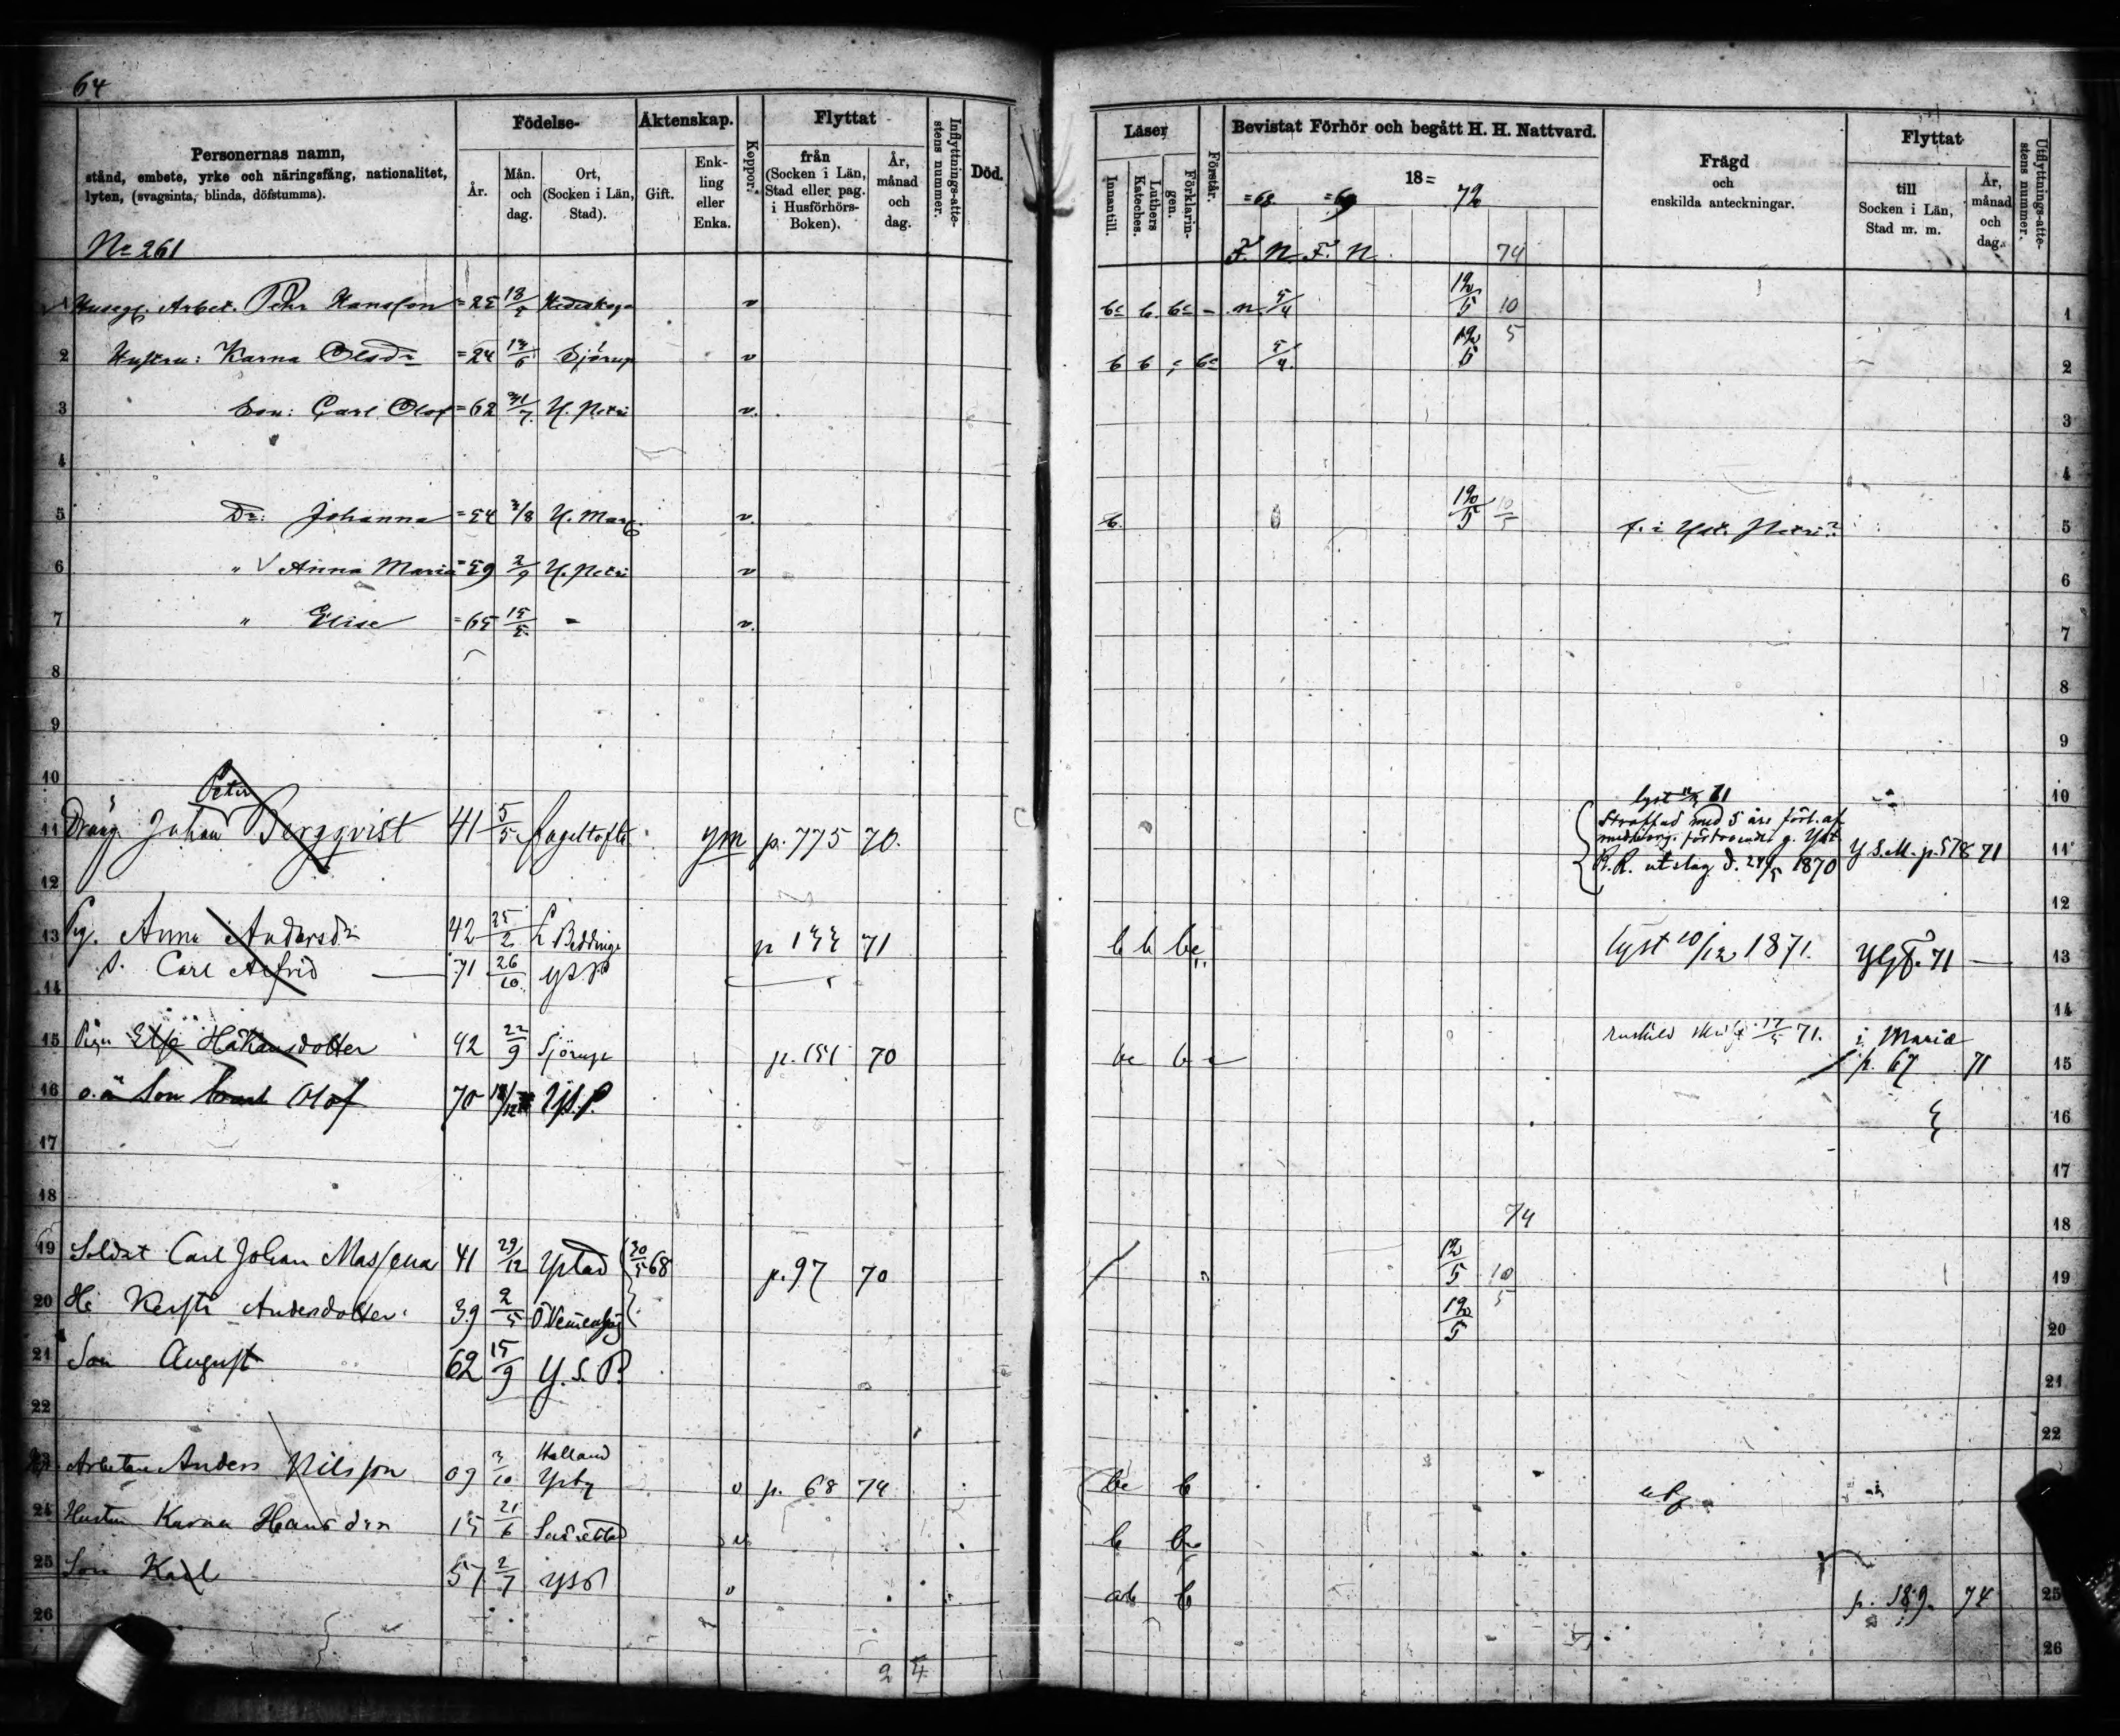 64
Personernas namn,
stånd, embete, yrke och näringsfång, nationalitet,
lyten, (svagsinta, blinda, döfstumma).
Födelse-
År.
Mån. och dag.
Ort, (Socken i Län, Stad).
Äktenskap.
Gift.
Enkling eller Enka.
Koppor.
Flyttat
från (Socken i Län, Stad eller pag. i Husförhörs-Boken).
År, månad och dag.
Inflyttnings-attestens nummer.
Död.
Läser
Innantill.
Luthers Kateches.
Förklaringen.
Förstår.
Bevistat Förhör och begått H. H. Nattvard.
18=
=68. =69 72
F. N. F. N. 74
Frägd
och
enskilda anteckningar.
Flyttat
till Socken i Län, Stad m. m.
År, månad och dag.
Utflyttnings-attestens nummer.
No 261
1 Huseg. Arbet. Pehr Hansson =25 18/ Hedeskoga v 12/5 10 1
2 Hustru: Karna Olsdr =24 Sjörup v b b 12/5 5 2
3 Son: Carl Olof =62 31/7 Y. Petri v. 3
4 4
5 Dr: Johanna =54 /8 Y. Mar. v. b. 12/5 10/5 f. i Yst. Petri? 5
6 " Anna Maria =59 2/9 Y. Petri v 6
7 " Elise =65 15/5 - v. 7
8 8
9 9
10 10
Peter
lyst 71
11 Dräng Johan Bergqvist 41 5/5 Fogeltofta ym p. 775 70. Straffad med 5 års förl. af
medborg. förtroende g. Yst.
R.R. utslag d. 24/5 1870 Y S. M. p. 578 71 11
12 12
13 Pig. Anna Andersdr 42 25/2 L Beddinge p 71 b b be lyst 10/12 1871. 71 13
s. Carl Alfrid 71 26/10
14 14
15 Pigan Elsa Håkansdotter 42 22/9 Sjörup p. 151 70 be 17/5 71. i Maria
p. 67 71 15
16 o.ä son Olof 70 Yst. P. 16
17 17
18 74 18
19 Soldat Carl Johan Massena 41 29/12 Ystad 30/5 68 p. 97 70 12/5 10 19
20 H: Kersti Andersdotter 39 2/5 Ö Vemenhög 12/5 5 20
21 Son August 62 15/9 Y. S. P. 21
22 22
Halland
Arbetare Anders Nilsson 09 3/10 Ysby v p. 68 74 be b
24 Hustru Karna Hansdr 15 21/6 b
25 Son Karl 57 2/7 v b p. 189. 74 25
26 26
2 4